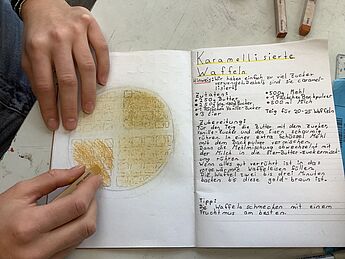 Karamellisierte
Waffeln
Hinweis: Wir haben einfach er viel Zucker
deswegen sind sie caramel-
lisiert
Zutaten:
• 500g Mehl
• 250g Butter
• 1 Päckchen Backpulver
• 500 ml Milch
• 3 Eier
Teig für 20-25 Waffeln
Zubereitung:
Für den Teig die Butter mit dem Zucker,
Vanillezucker und den Eiern schaumig
rühren. In einer extra Schüssel Mehl
mit dem Backpulver vermischen.
Dann die Mehlmischung abwechselnd mit
der Milch in die Eier-Butter-Zuckermisch-
ung rühren.
Wenn alles gut verrührt ist in das
vorgewärmte Waffeleisen füllen.
Die Waffel zwei bis drei Minuten
backen bis diese gold-braun ist.
Tipp:
Die Waffeln schmecken mit einem
Fruchtmus am besten.